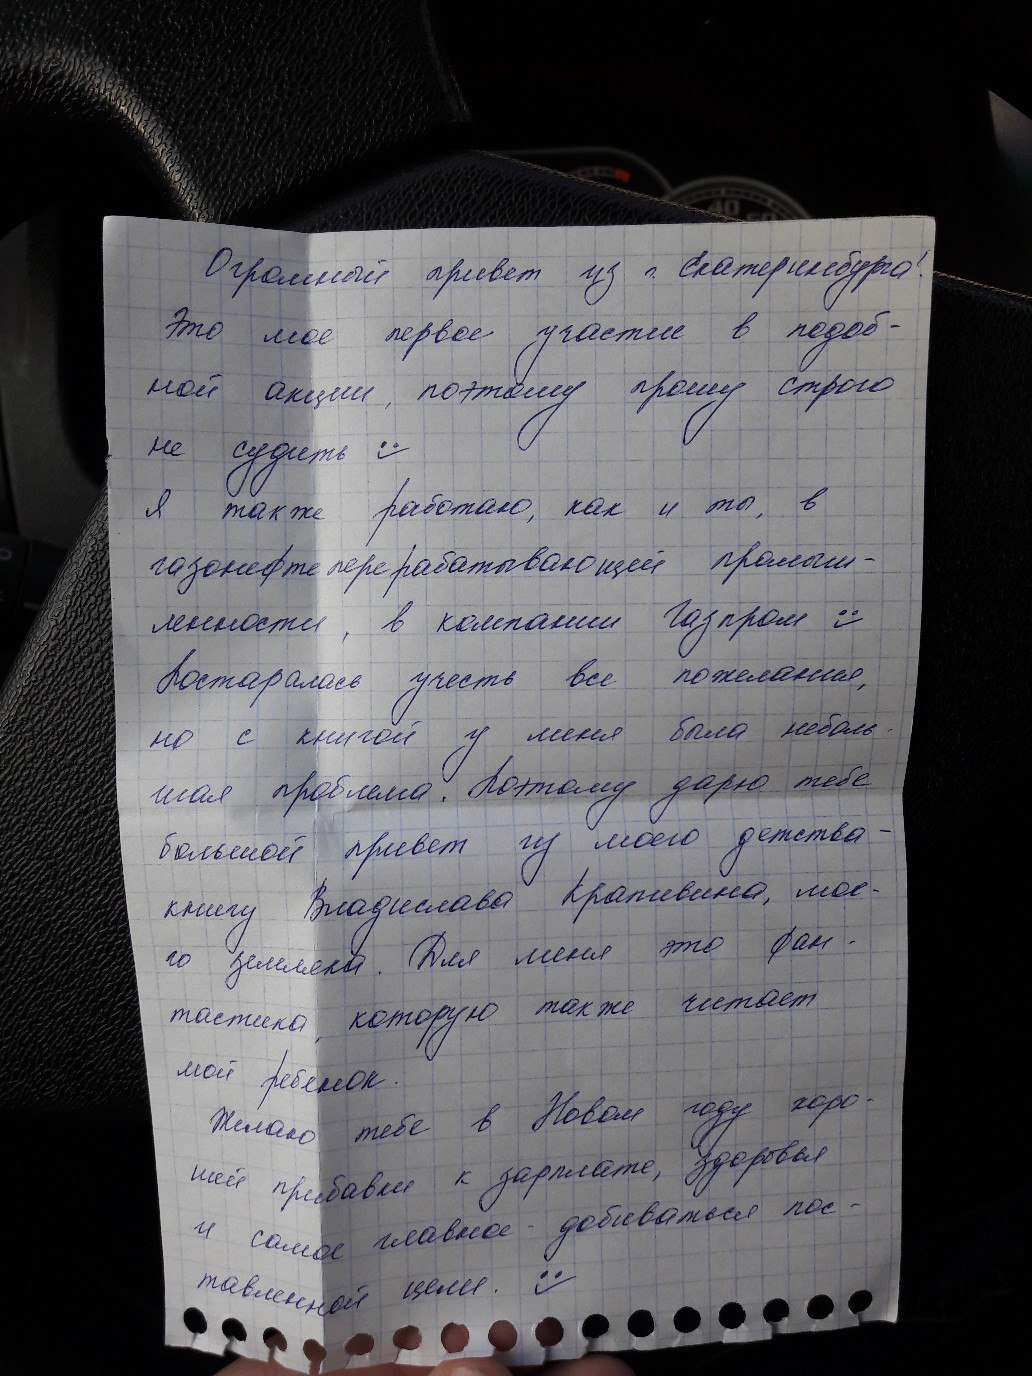 Огромный привет из г. Екатеринбурга!
Это мое первое участие в подоб-
ной акции, поэтому прошу строго
не судить :)
Я также работаю, как и ты, в
газонефтеперерабатывающей промыш-
ленности, в компании Газпром :)
Постаралась учесть все пожелания,
но с книгой у меня была неболь-
шая проблема. Поэтому дарю тебе
большой привет из моего детства -
книгу Владислава Крапивина, мое-
го земляка. Для меня это фан-
тастика, которую также читает
мой ребенок.
Желаю тебе в Новом году хоро-
шей прибавки к зарплате, здоровья
и самое главное - добиваться пос-
тавленной цели. :)